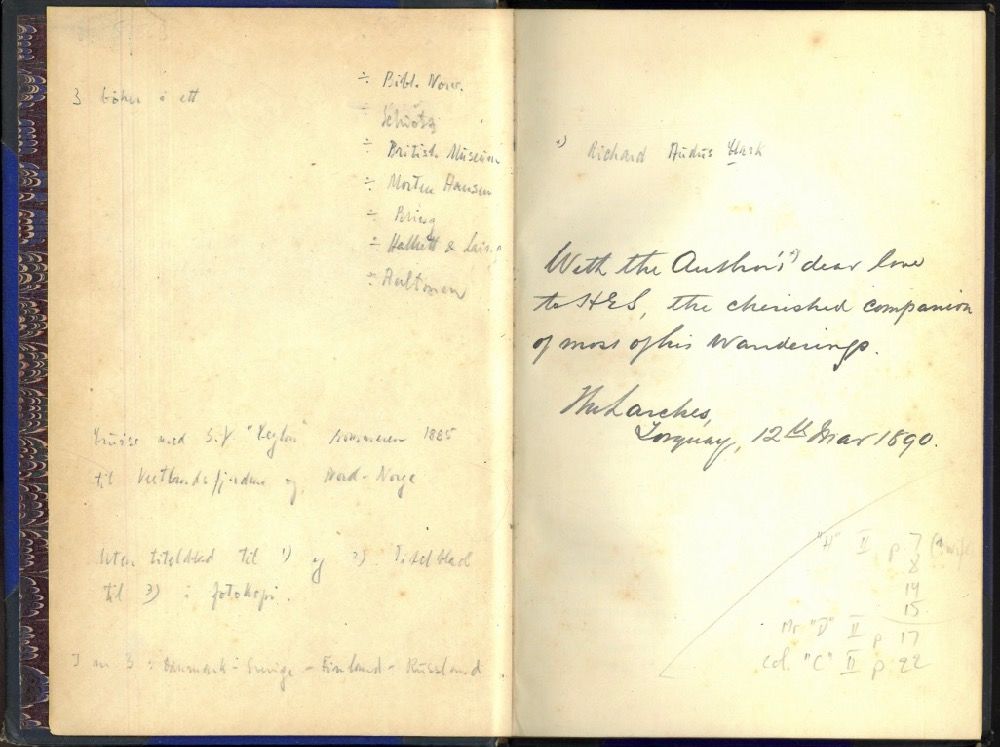 3 bøker i ett
÷ Bibl. Norv.
÷ Schiøtz
÷ British Museum
÷ Morten Hansen
÷ Bring
÷ Halkett &
÷ Aaltonen
med S.Y. "Ceylon" sommeren 1885
til Vestlandsfjordene og Nord-Norge
Uten titelblad til 1) og 2). Titelblad
til 3) i fotokopi.
I nr 3: Danmark - Sverige - Finland - Russland
1) Richard Audus Clark
With the Author's 1) dear love
to HES, the cherished companion
of most of his Wanderings.
The Larches,
Torquay, 12th Mar 1890.
"D" II p 7
8
14
15
Mr "D" II p 17
Col. "C" II p. 22